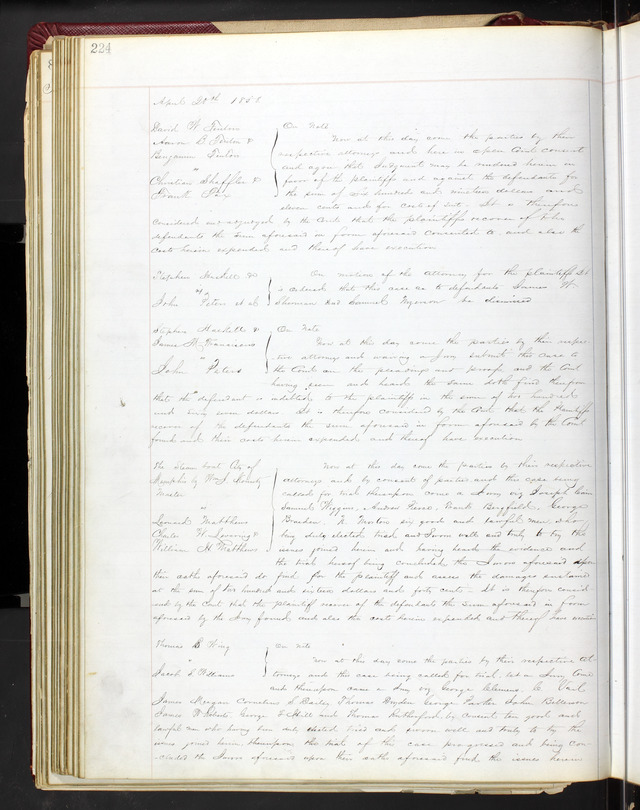 224
April 20th 1857
David W.
Aaron B. &
Benjamin
"
Christian Sheffler &
On Note
Now at this day come the parties by their
respective attorneys and here in open Court consent
and agree that Judgment may be rendered herein in
favor of the plaintiffs and against the defendants for
the sum of Six hundred and nineteen dollars and
eleven cents and for cost of suit. It is therefore
Considered and adjudged by the Court that the plaintiffs recover of the
defendants the sum aforesaid in form aforesaid consented to and also the
costs herein expended and thereof have execution
Stephen Haskell &
vs
John Peters et al
On motion of the Attorney for the plaintiffs It
is ordered that this case as to defendants W
Sherman and Samuel be dismissed
Stephen Haskell &
James H.
"
John Peters
On Note
Now at this day come the parties by their respec
tive attorneys and waiving a Jury submit this case to
the Court on the pleadings and proofs and the Court
having seen and heard the same doth find therefrom
that the defendant is indebted to the plaintiffs in the sum of two hundred
and seven dollars It is therefore considered by the Court that the Plaintiffs
recover of the defendants the sum aforesaid in form aforesaid by the Court
found and their costs herein expended and thereof have execution
The Steam boat City of
Memphis by Wm J.
Master
"
Leonard Matthews
Charles W.
William H. Matthews
Now at this day come the parties by their respective
attorneys and by consent of parties and this case being
called for trial thereupon come a Jury viz Joseph
Samuel Wiggins, Andrew Reese, Frank George
N. Morton six good and lawful men who
being duly elected tried and sworn well and truly to try the
issues joined herein and having heard the evidence and
the trial hereof being concluded the Jurors aforesaid upon
their oath aforesaid do find for the plaintiff and assess the damages sustained
at the sum of two hundred and sixteen dollars and forty cents. It is therefore consid-
ered by the Court that the plaintiff recover of the defendants the sum aforesaid in form
aforesaid by the Jury found and also the costs herein expended and thereof have execution
Thomas B Wing
"
Jacob S. Williams
On Note
Now at this day come the parties by their respective at-
torneys and this case being called for trial let a Jury come
and thereupon came a Jury viz George Clemens, C.
James Morgan Cornelius S. Bailey Thomas Bryden George Parker John
James W. Roberts George S. Hill and Thomas Rutherford by Consent ten good and
lawful men who being duly elected tried and sworn well and truly to try the
issues joined herein, thereupon the trial of this case progressed and being con-
cluded the Jurors aforesaid upon their oath aforesaid find the issues herein